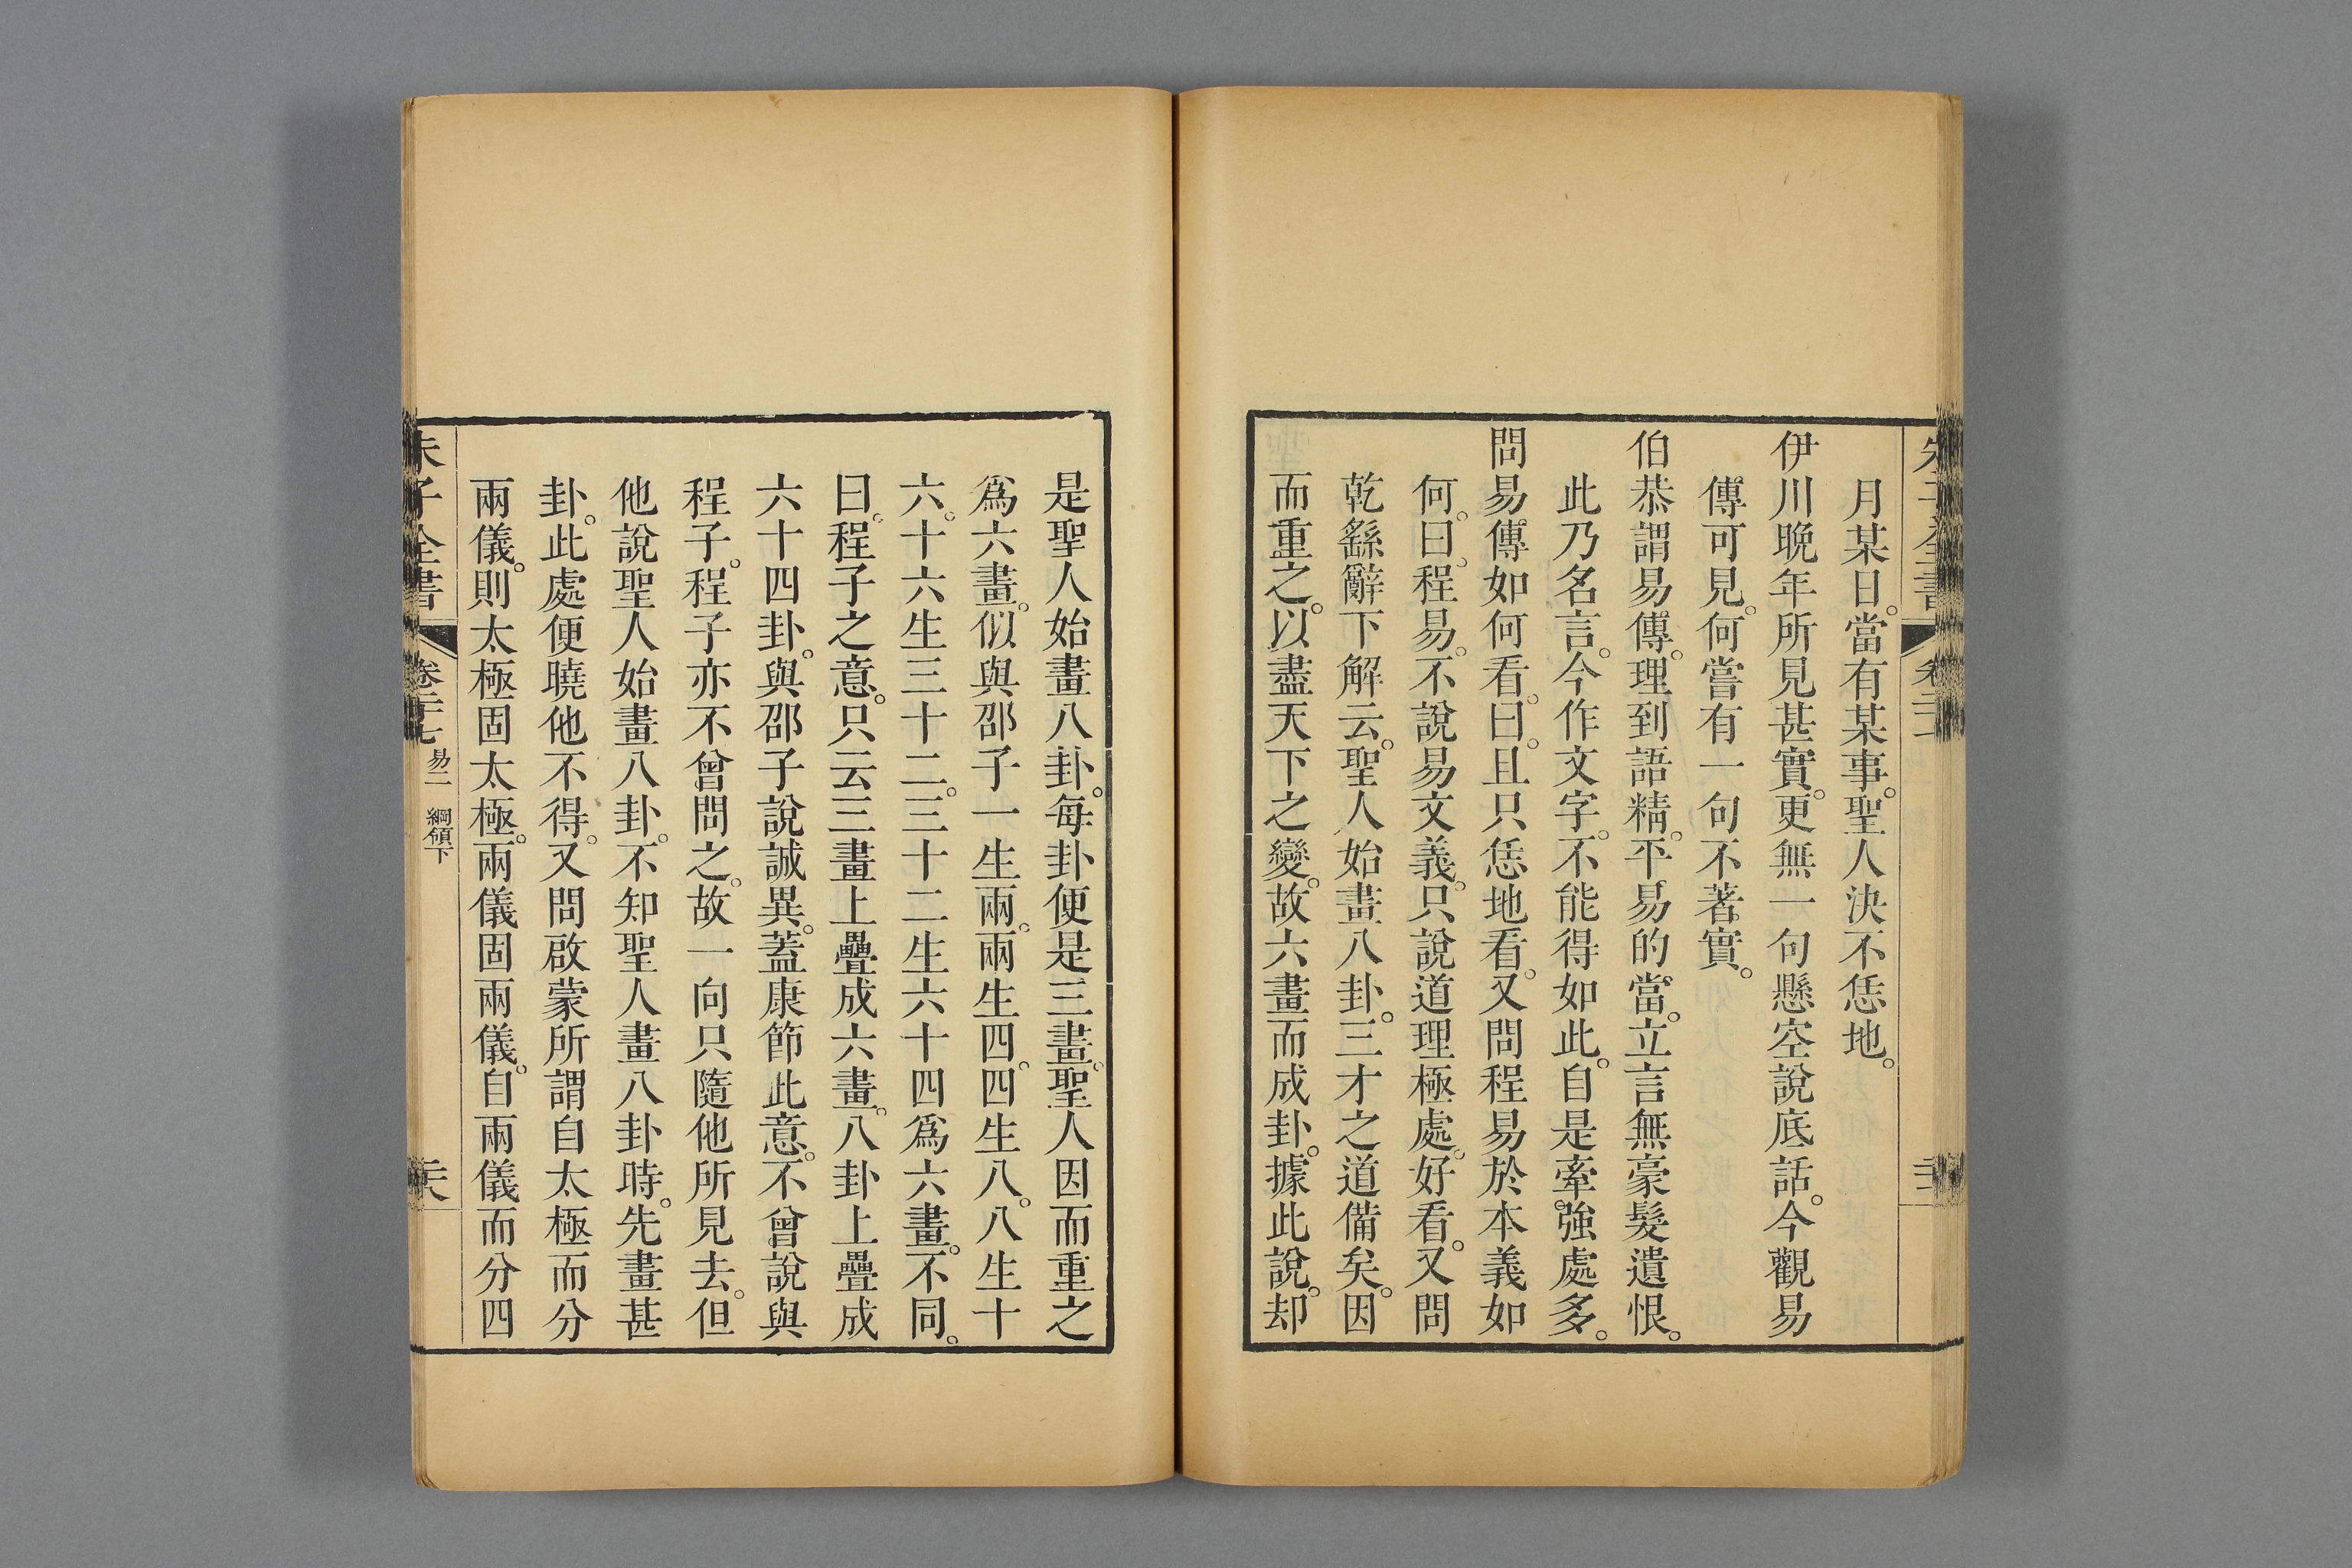 月某日。當有某事。聖人決不恁地。
伊川晚年所見甚實。更無一句懸空說底話。今觀易
傳可見。何嘗有一句不著實。
伯恭謂易傳。理到語精。平易的當。立言無豪髮遺恨。
此乃名言。今作文字。不能得如此。自是牽強處多。
問易傳如何看。曰。且只恁地看。又問程易於本義如
何。曰。程易。不說易文義。只說道理極處。好看。又問
乾繇辭下解云。聖人始畫八卦。三才之道備矣。因
而重之。以盡天下之變。故六畫而成卦。據此說。却
是聖人始畫八卦。每卦便是三畫。聖人因而重之
爲六畫。似與邵子一生兩。兩生四。四生八。八生十
六。十六生三十二。三十二生六十四爲六畫。不同。
曰。程子之意。只云三畫上疊成六畫。八卦上疊成
六十四卦。與邵子說誠異。蓋康節此意。不曾說與
程子。程子亦不曾問之。故一向只隨他所見去。但
他說聖人始畫八卦。不知聖人畫八卦時。先畫甚
卦。此處便曉他不得。又問啟蒙所謂自太極而分
兩儀。則太極固太極。兩儀固兩儀。自兩儀而分四
朱子全書 卷二十七 易二 綱領下